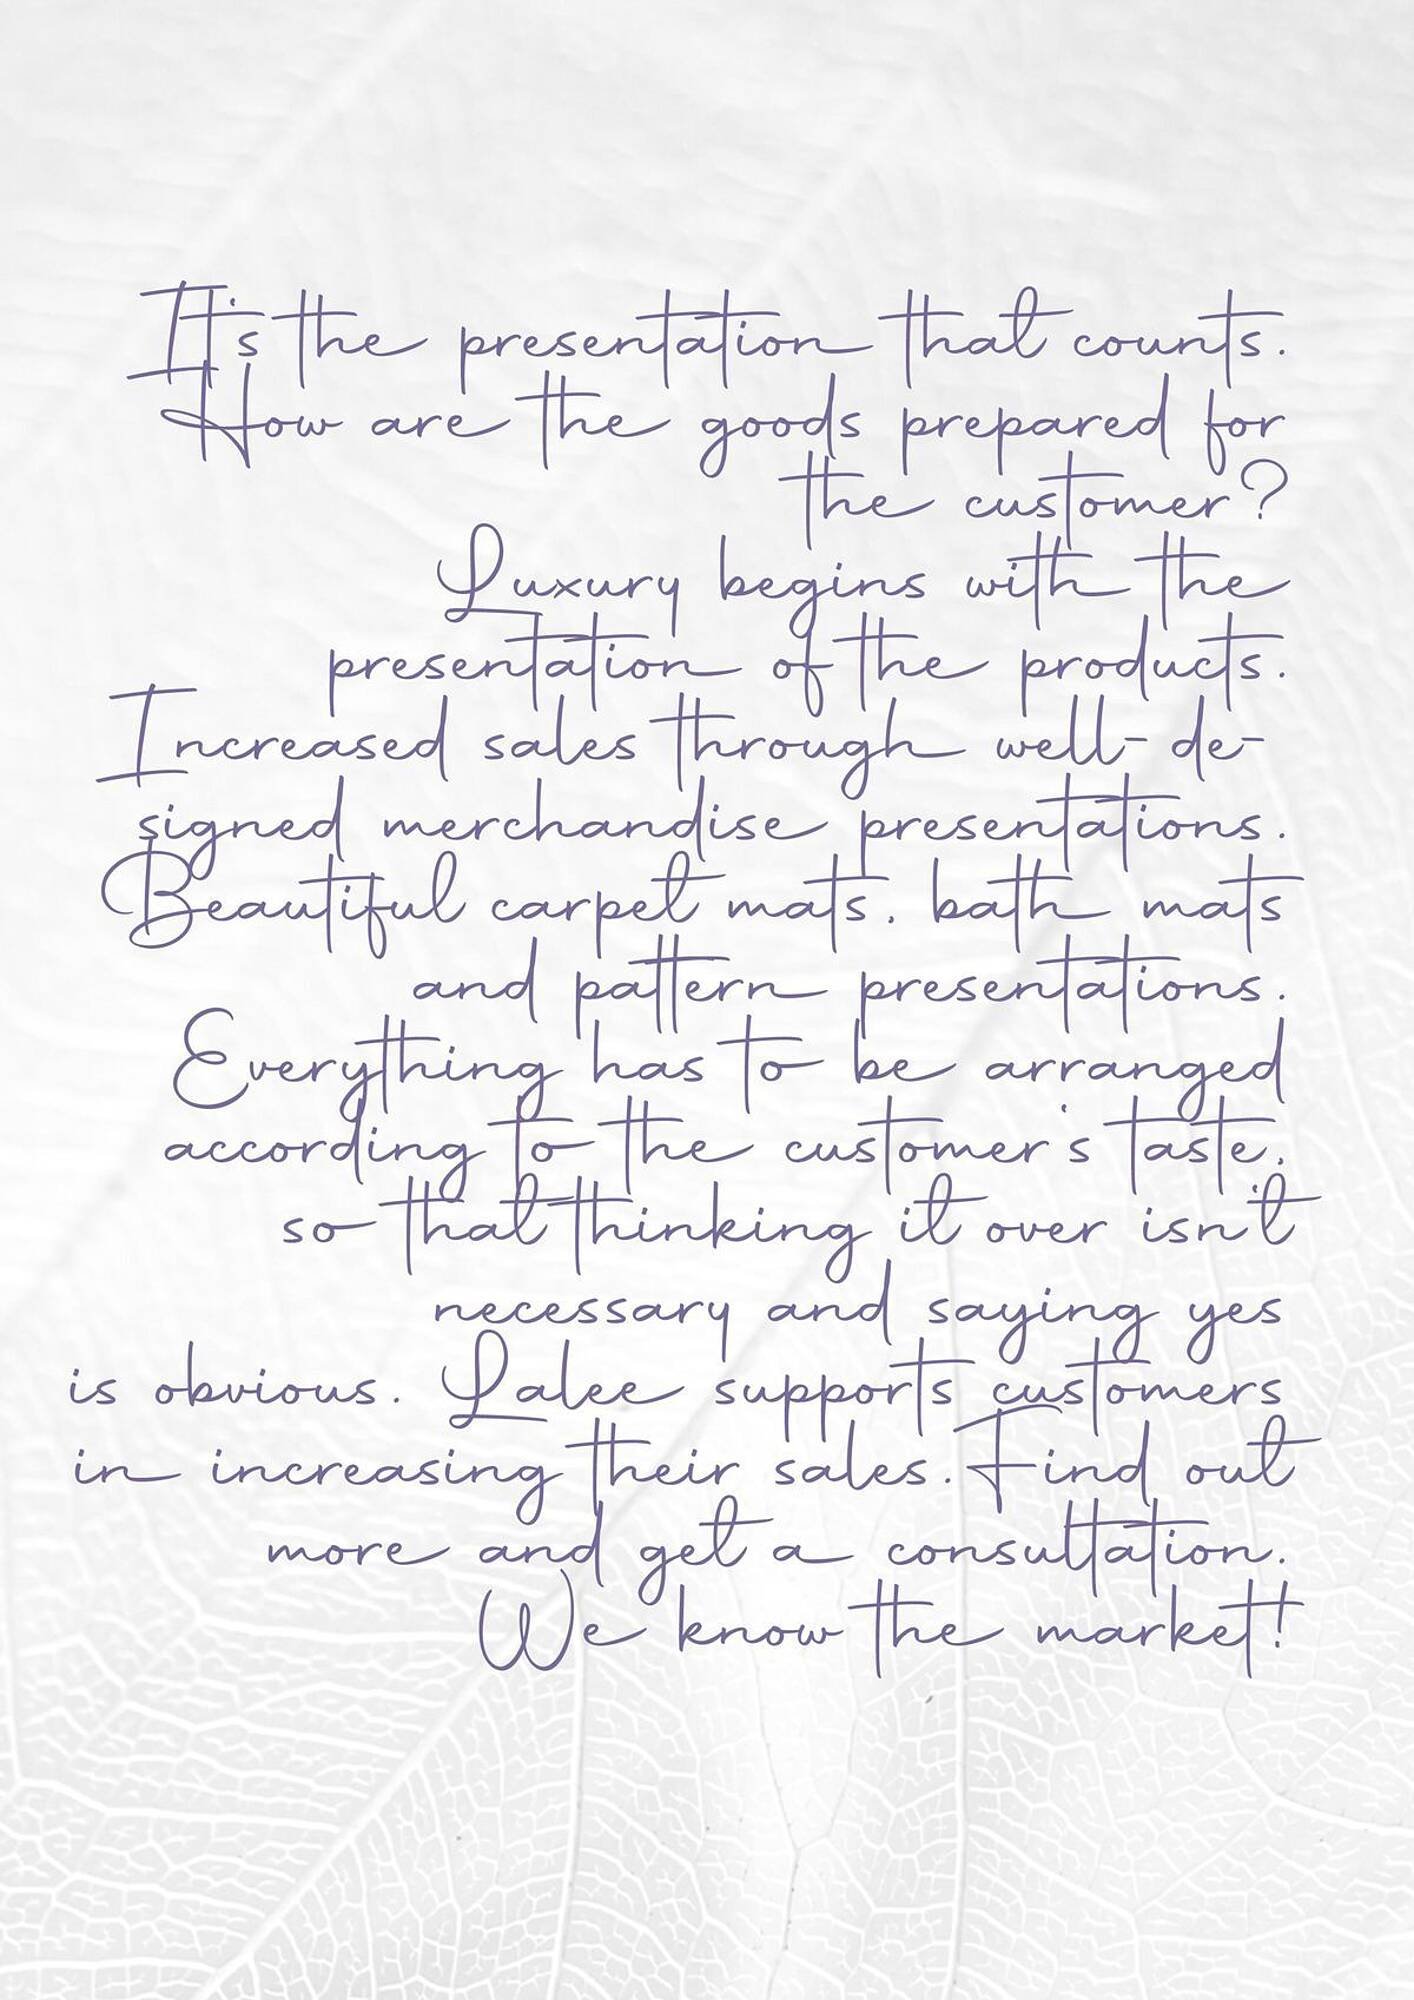 It's the presentation that counts.
How are the goods prepared for
the customer?
Luxury begins with the
presentation of the products.
Increased sales through well-de-
signed merchandise presentations.
Beautiful carpet mats, bath mats
and pattern presentations.
Everything has to be arranged
according to the customer's taste,
so that thinking it over isn't
necessary and saying yes
is obvious. Lalee supports customers
in increasing their sales. Find out
more and get a consultation.
We know the market!